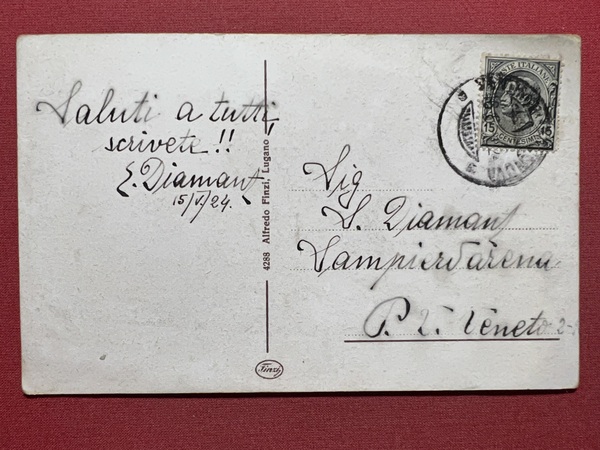 Saluti a tutti
scrivete!!
E. Diamant
15/V/24.
4288 Alfredo Finzi, Lugano
Finzi
POSTE ITALIANE
15 15
CENTESIMI
Sig
S. Diamant
Sampierdarena
P. V. Veneto 2-